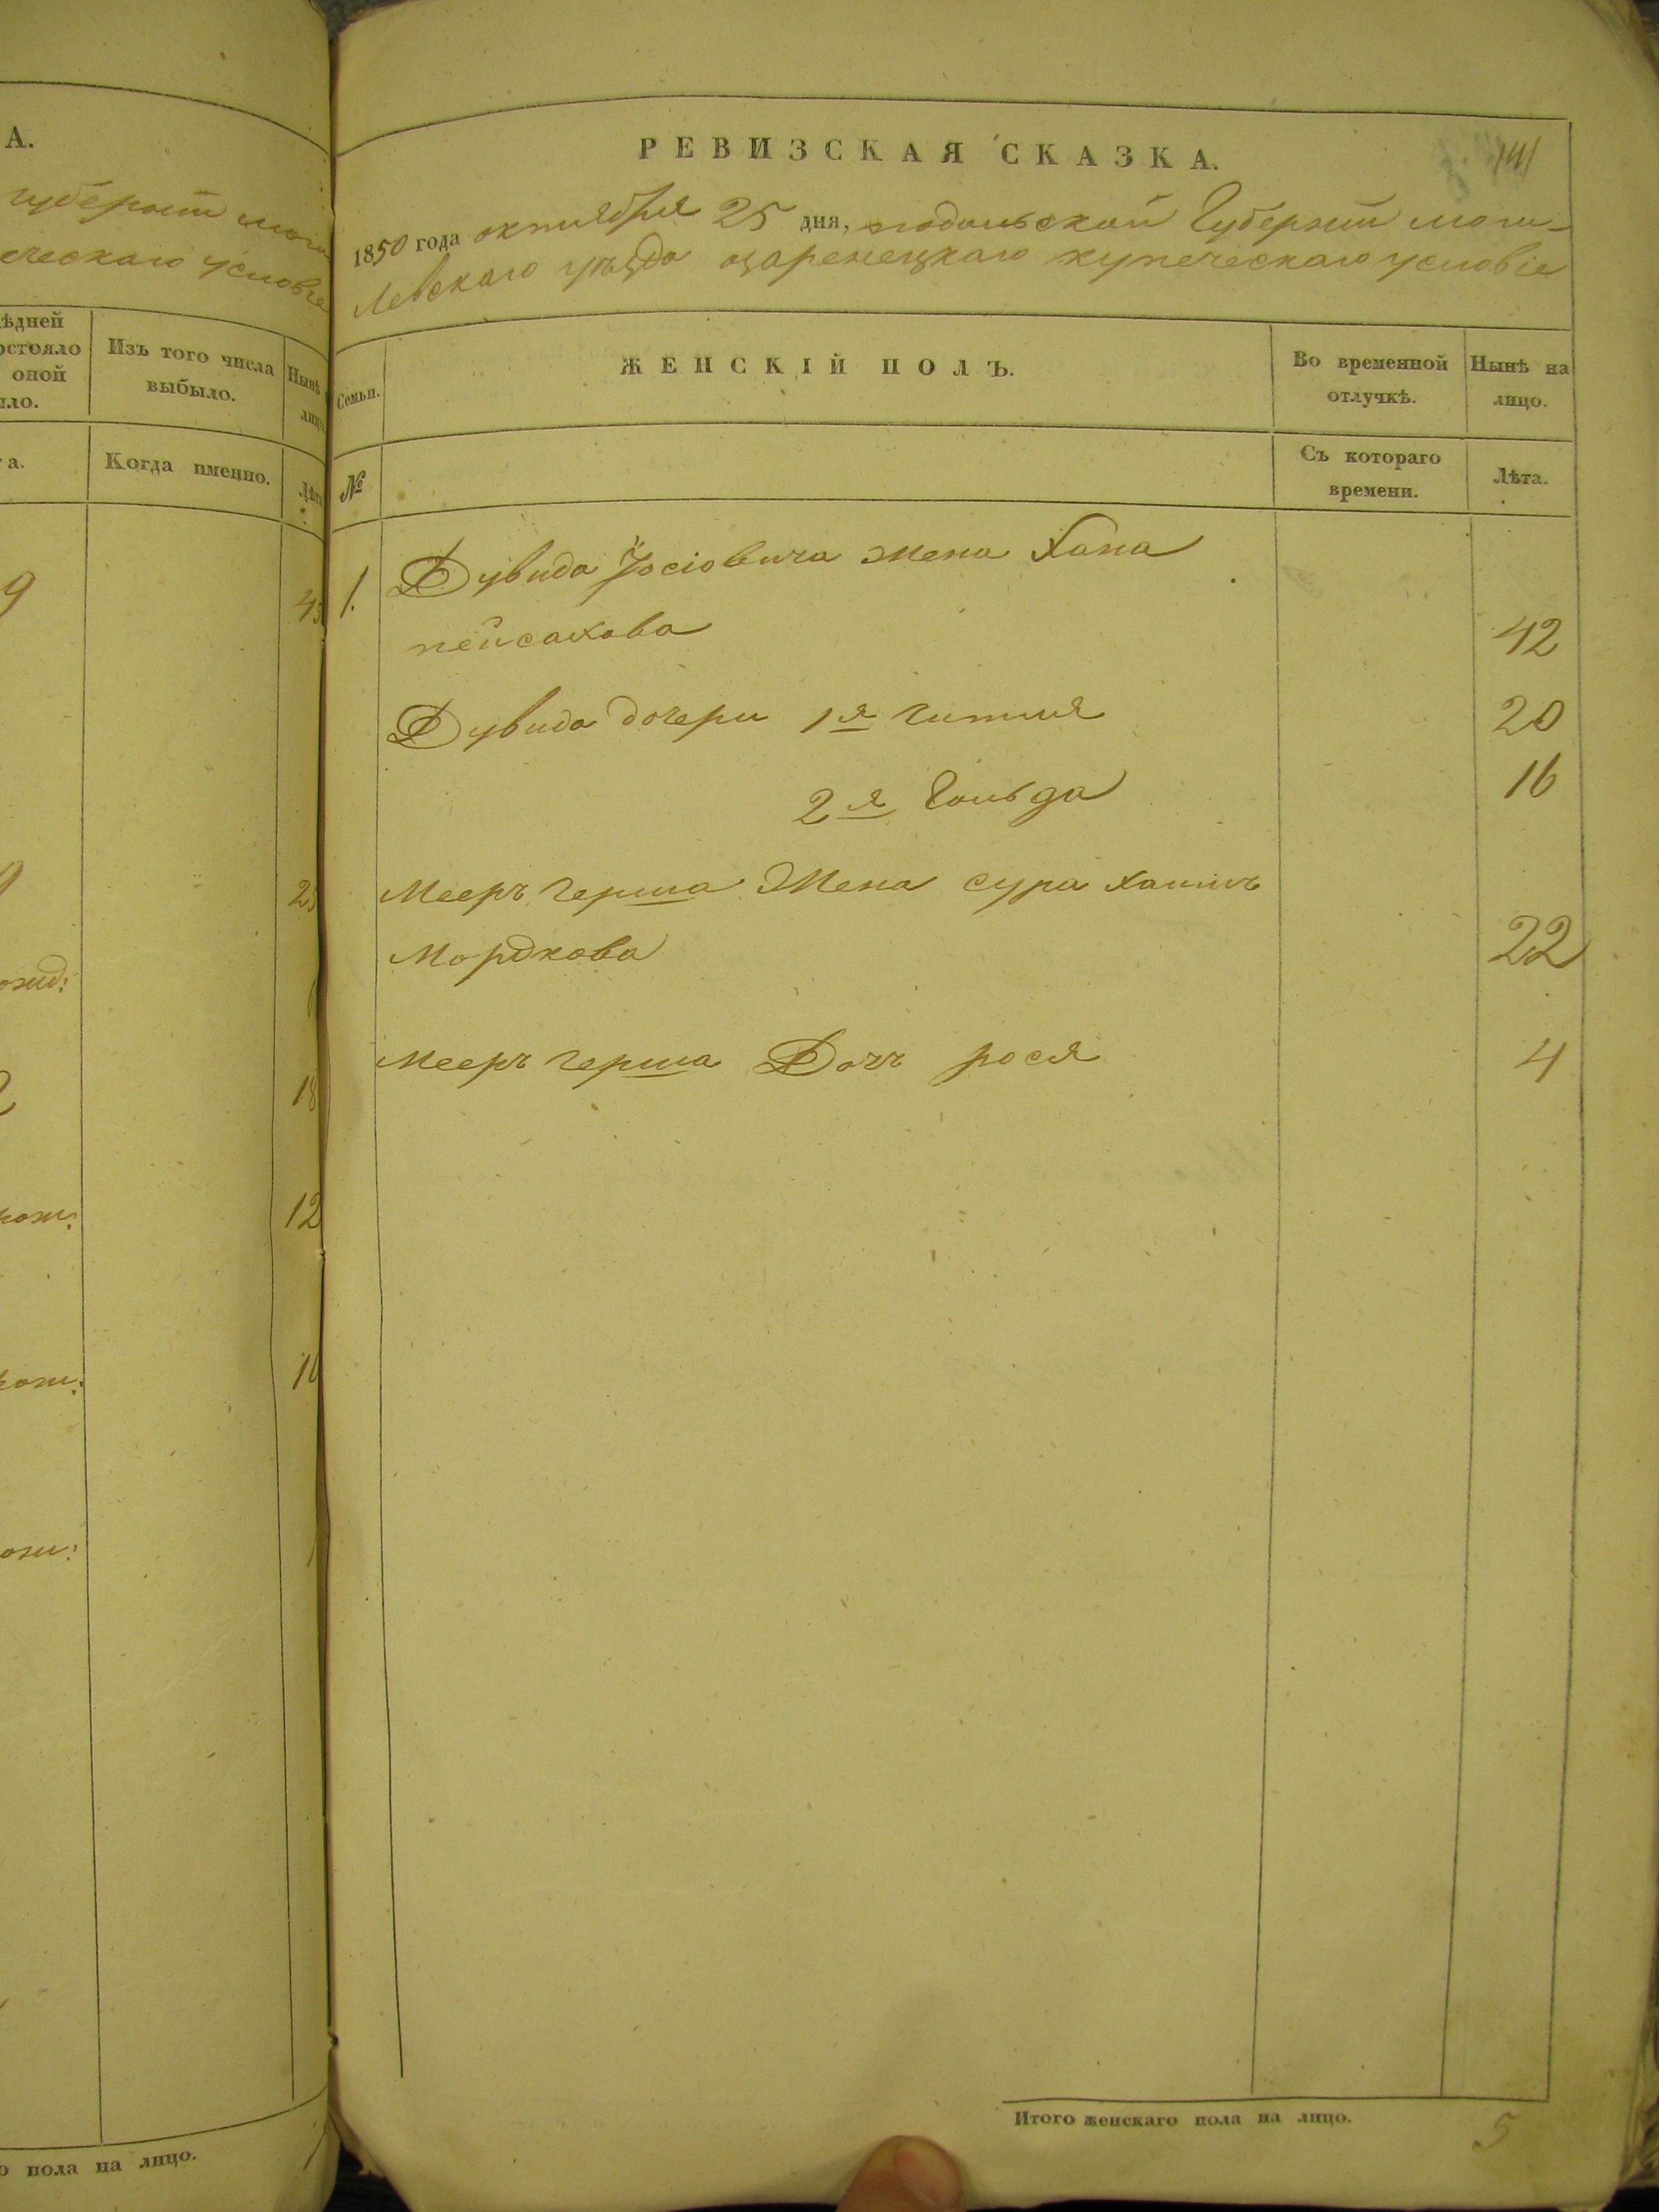 А.
губернии моги
еческаго условіе
ѣдней
остояло
оной
ло.
Изъ того числа
выбыло.
Нынѣ
лицо
та.
Когда именно.
Лѣта
9
45
25
18
12
рож:
рож:
ож:
о пола на лицо.
РЕВИЗСКАЯ СКАЗКА.
1850 года октября 25 дня, подольской Губерніи моги-
левскаго уѣзда озаренецкаго купеческаго условіе
Семьи.
ЖЕНСКІЙ ПОЛЪ.
Во временной
отлучкѣ.
Нынѣ на
лицо.
№
Съ котораго
времени.
Лѣта.
1. Дувида Іосіовича жена Хана
пейсахова 42
Дувида дочери 1я Гитля 20
2я Гольда 16
Мееръ Герша Жена сура
Мордкова 22
Мееръ Герша Дочъ рося 4
Итого женскаго пола на лицо. 5